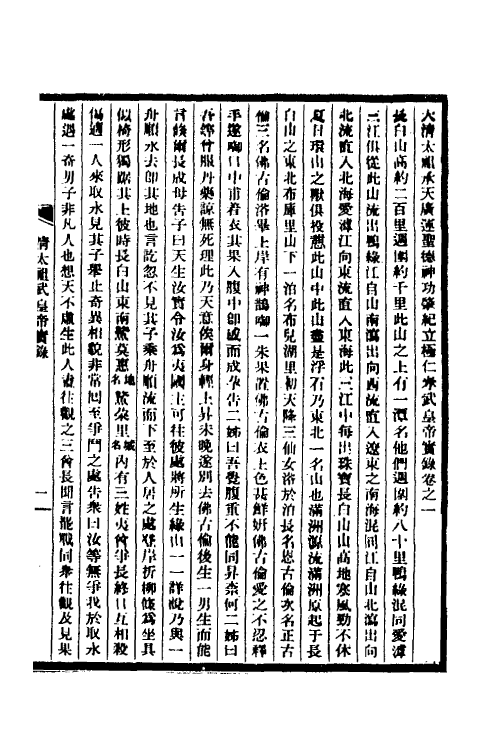 大清太祖承天廣運聖德神功肇紀立極仁孝武皇帝實錄卷之一
長白山高約二百里週圍約千里此山之上有一潭名他們週圍約八十里鴨綠混同愛滹
三江俱從此山流出鴨綠江自山南瀉出向西流直入遼東之南海混同江自山北瀉出向
北流直入北海愛滹江向東流直入東海此三江中每出珠寶長白山山高地寒風勁不休
夏日環山之獸俱投憩此山中此山盡是浮石乃東北一名山也滿洲源流滿洲原起于長
白山之東北布庫里山下一泊名布兒湖里初天降三仙女浴於泊長名恩古倫次名正古
倫三名佛古倫浴畢上岸有神鵲啣一朱果置佛古倫衣上色甚鮮妍佛古倫愛之不忍釋
手遂啣口中甫着衣其果入腹中即感而成孕告二姊曰吾覺腹重不能同昇奈何二姊曰
吾等曾服丹藥諒無死理此乃天意俟爾身輕上昇未晚遂別去佛古倫後生一男生而能
言倐爾長成母告子曰天生汝實令汝為夷國主可往彼處將所生緣由一一詳說乃與一
舟順水去即其地也言訖忽不見其子乘舟順流而下至於人居之處登岸折柳條為坐具
似椅形獨踞其上彼時長白山東南鰲莫惠地名鰲朶里城名內有三姓夷酋爭長終日互相殺
傷適一人來取水見其子舉止奇異相貌非常回至爭鬥之處告衆曰汝等無爭我於取水
處遇一奇男子非凡人也想天不虛生此人盍往觀之三酋長聞言罷戰同衆往觀及見果
清太祖武皇帝實錄
一